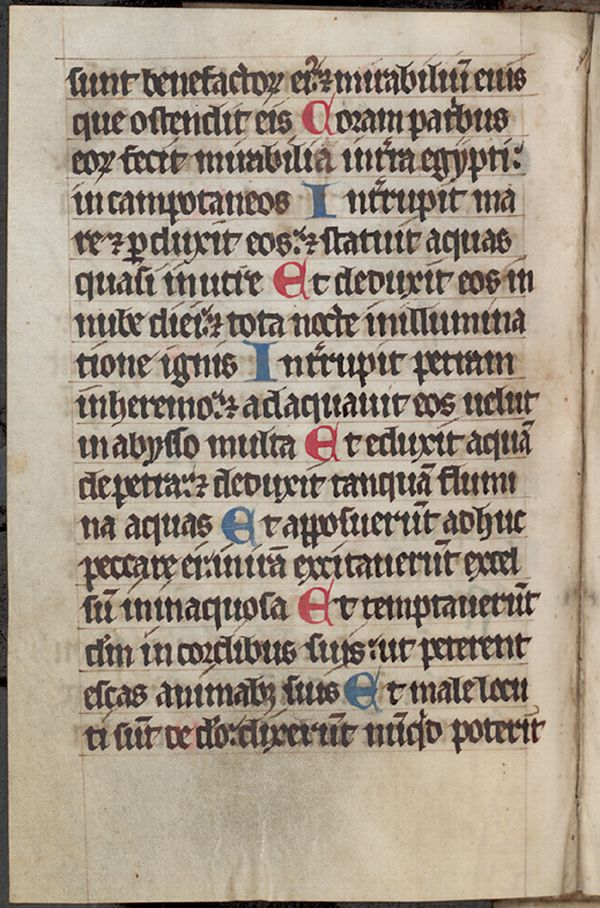 sunt benefactoꝝ eiꝰ ⁊ mirabiliū eius
que ostendit eis Coram patͥbus
eoꝝ fecit mirabilia in tͬra egypti:
in campo taneos Intͬrupit ma
re ⁊ ꝑduxit eos: ⁊ statuit aquas
quasi in utre Et deduxit eos in
nube diei: ⁊ tota nocte in illumina
tione ignis Intͬrupit petram
in heremo: ⁊ adaquauit eos uelut
in abysso multa Et eduxit aquā
de petra: ⁊ deduxit tanquā flumi
na aquas Et apposuerūt adhuc
peccare ei: in irā excitauerūt excel
sū in inaquosa Et temptauerūt
dm̄ in cordibus suis: ut peterent
escas animabꝫ suis Et male locu
ti sūt de dō: dixerūt nūqͥd poterit